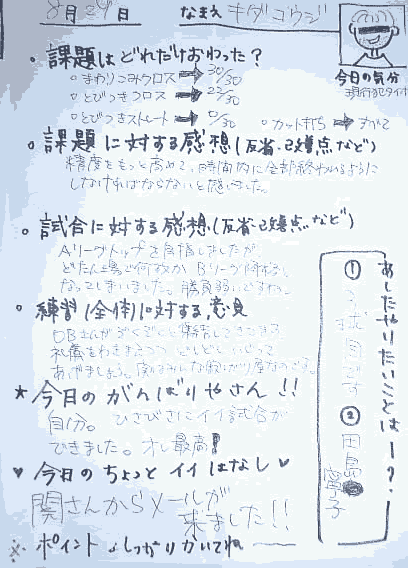 8月29日 なまえ キダ コウジ
今日の気分
・課題はどれだけおわった?
○まわりこみクロス ➡ 30/30
○とびつきクロス ➡ 27/30
○とびつきストレート ➡ 0/30 ○カット打ち ➡
・課題に対する感想(反省・改善点など)
精度をもっと高めて、時間内に全部終わるように
しなければならないと感じました。
・試合に対する感想(反省・改善点など)
Aリーグトップを目指しましたが
どたん場で何故か Bリーグ降格に
なってしまいました。勝負弱いどるわ。
○練習(全体)に対する意見
OBさんがぞくぞくと集結してきてます
礼儀をわきまえつつ どしどし
あげましょう。
★今日のがんばりやさん!!
自分。ひさびさにイイ試合が
できました。オレ最高!
♥今日のちょっとイイはなし♥
関さんからメールが
来ました!!
※ポイントはしっかりかいてね
あしたやりたいことはー?
① 球目です
② 田島